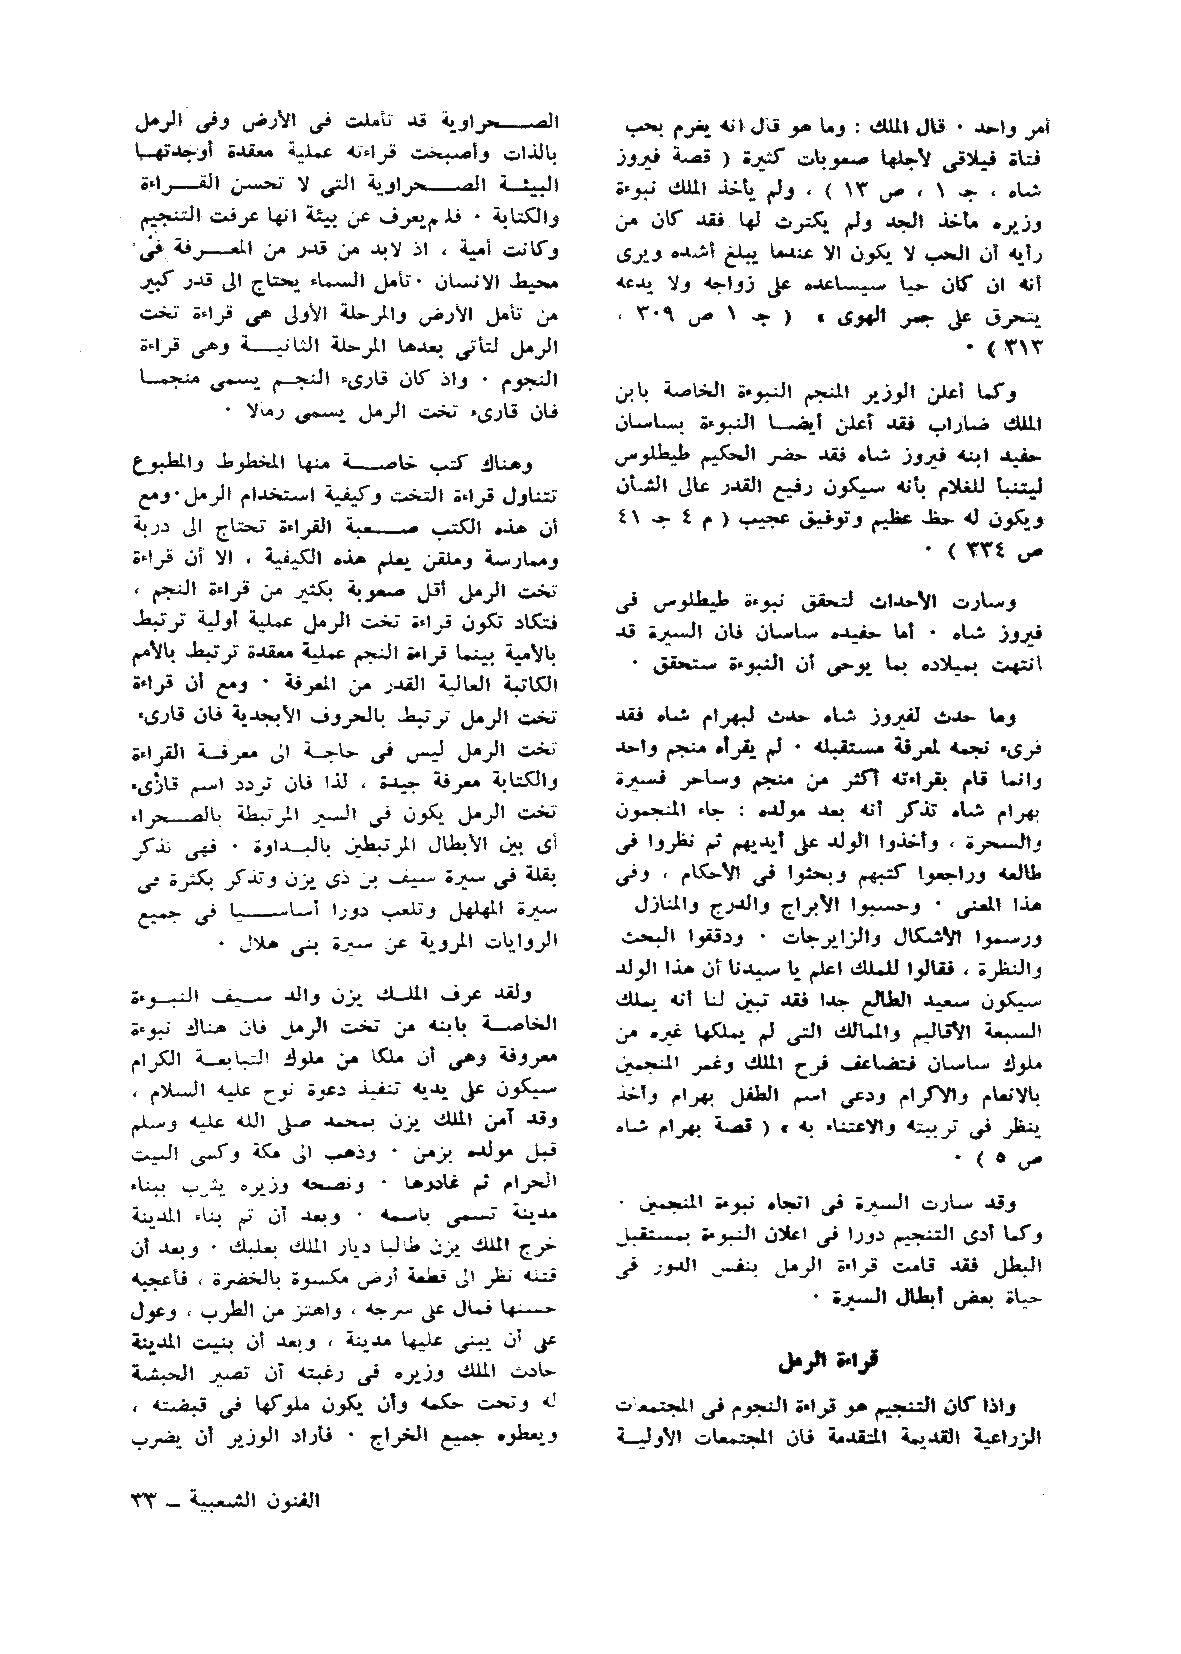 أمر واحد · قال الملك : وما هو قال انه يغرم بحب
فتاة فيلاقى لأجلها صعوبات كثيرة ( قصة فيروز
شاه ، جـ ١ ، ص ١٣ ) ، ولم يأخذ الملك نبوءة
وزيره مأخذ الجد ولم يكترث لها فقد كان من
رأيه أن الحب لا يكون الا عندما يبلغ أشده ويرى
أنه ان كان حيا سيساعده على زواجه ولا يدعه
يتحرق على جمر الهوى » ( جـ ١ ص ٣٠٩ ،
٣١٣ ) ·
وكما أعلن الوزير المنجم النبوءة الخاصة بابن
الملك ضاراب فقد أعلن أيضا النبوءة بساسان
حفيد ابنه فيروز شاه فقد حضر الحكيم طيطلوس
ليتنبأ للغلام بأنه سيكون رفيع القدر عالى الشأن
ويكون له حظ عظيم وتوفيق عجيب ( م ٤ جـ ٤١
ص ٣٣٤ ) ·
وسارت الأحداث لتحقق نبوءة طيطلوس فى
فيروز شاه · أما حفيده ساسان فان السيرة قد
انتهت بميلاده بما يوحى أن النبوءة ستحقق ·
وما حدث لفيروز شاه حدث لبهرام شاه فقد
قرىء نجمه لمعرفة مستقبله · لم يقرأه منجم واحد
وانما قام بقراءته أكثر من منجم وساحر فسيرة
بهرام شاه تذكر أنه بعد مولده : جاء المنجمون
والسحرة ، وأخذوا الولد على أيديهم ثم نظروا فى
طالعه وراجعوا كتبهم وبحثوا فى الأحكام ، وفى
هذا المعنى · وحسبوا الأبراج والدرج والمنازل
ورسموا الأشكال والزايرجات · ودققوا البحث
والنظرة ، فقالوا للملك اعلم يا سيدنا أن هذا الولد
سيكون سعيد الطالع جدا فقد تبين لنا أنه يملك
السبعة الأقاليم والممالك التى لم يملكها غيره من
ملوك ساسان فتضاعف فرح الملك وغمر المنجمين
بالانعام والاكرام ودعى اسم الطفل بهرام وأخذ
ينظر فى تربيته والاعتناء به » ( قصة بهرام شاه
ص ٥ ) ·
وقد سارت السيرة فى اتجاه نبوءة المنجمين ·
وكما أدى التنجيم دورا فى اعلان النبوءة بمستقبل
البطل فقد قامت قراءة الرمل بنفس الدور فى
حياة بعض أبطال السيرة ·
قراءة الرمل
واذا كان التنجيم هو قراءة النجوم فى المجتمعات
الزراعية القديمة المتقدمة فان المجتمعات الأوليــة
الصــحراوية قد تأملت فى الأرض وفى الرمل
بالذات وأصبحت قراءته عملية معقدة أوجدتهـا
البيئــة الصــحراوية التى لا تحسن القــراءة
والكتابة · فلم يعرف عن بيئة انها عرفت التنجيم
وكانت أمية ، اذ لابد من قدر من المعــرفة فى
محيط الانسان · تأمل السماء يحتاج الى قدر كبير
من تأمل الأرض والمرحلة الأولى هى قراءة تخت
الرمل لتأتى بعدها المرحلة الثانيــة وهى قراءة
النجوم · واذ كان قارىء النجـم يسمى منجمـا
فان قارىء تخت الرمل يسمى رمالا ·
وهناك كتب خاصــة منها المخطوط والمطبوع
تتناول قراءة التخت وكيفية استخدام الرمل · ومع
أن هذه الكتب صــعبة القراءة تحتاج الى دربة
وممارسة وملقن يعلم هذه الكيفية ، الا أن قراءة
تخت الرمل أقل صعوبة بكثير من قراءة النجم ،
فتكاد تكون قراءة تخت الرمل عملية أولية ترتبط
بالأمية بينما قراءة النجم عملية معقدة ترتبط بالأمم
الكاتبة العالية القدر من المعرفة · ومع أن قراءة
تخت الرمل ترتبط بالحروف الأبجدية فان قارىء
تخت الرمل ليس فى حاجـة الى معرفـة القراءة
والكتابة معرفة جيدة ، لذا فان تردد اسم قارىء
تخت الرمل يكون فى السير المرتبطة بالصــحراء
أى بين الأبطال المرتبطين بالبــداوة · فهى تذكر
بقلة فى سيرة سيف بن ذى يزن وتذكر بكثرة فى
سيرة المهلهل وتلعب دورا أساســيا فى جميع
الروايات المروية عن سيرة بنى هلال ·
ولقد عرف الملـك يزن والد سـيف النبـوءة
الخاصــة بابنه من تخت الرمل فان هناك نبوءة
معروفة وهى أن ملكا من ملوك التبابعـة الكرام
سيكون على يديه تنفيذ دعوة نوح عليه السلام ،
وقد آمن الملك يزن بمحمد صلى الله عليه وسلم
قبل مولده بزمن · وذهب الى مكة وكسى البيت
الحرام ثم غادرها · ونصحه وزيره يثرب ببناء
مدينة تسمى باسمه · وبعد أن تم بناء المدينة
خرج الملك يزن طالبا ديار الملك بعلبك · وبعد أن
قتله نظر الى قطعة أرض مكسوة بالخضرة ، فأعجبه
حسنها فمال على سرجه ، واهتز من الطرب ، وعول
على أن يبنى عليها مدينة ، وبعد أن بنيت المدينة
حادث الملك وزيره فى رغبته أن تصير الحبشة
له وتحت حكمه وأن يكون ملوكها فى قبضته ،
ويعطوه جميع الخراج · فأراد الوزير أن يضرب
الفنون الشعبية – ٣٣